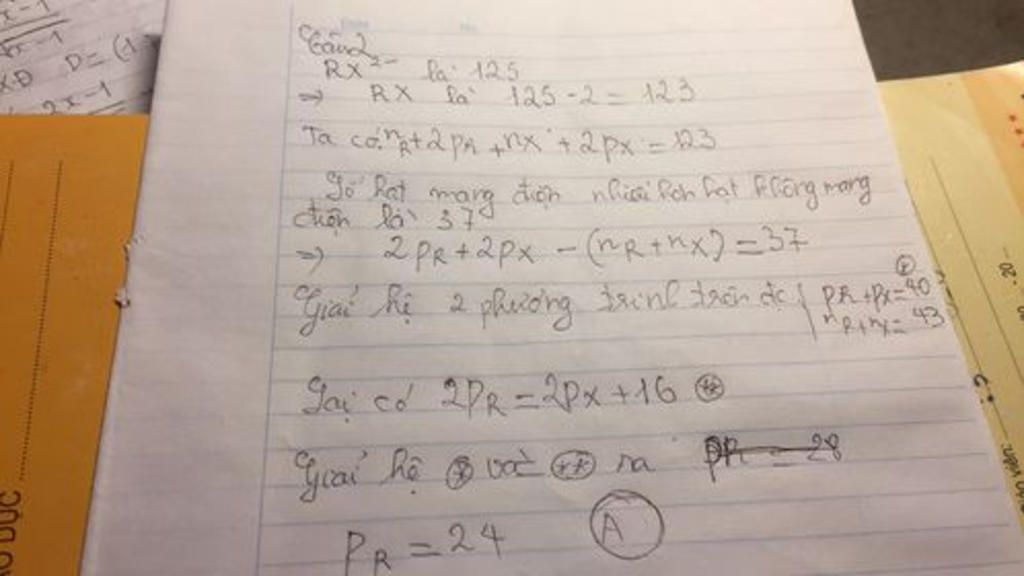 x-1
x-1
D = (1
2x-1
Câu 2
RX²⁻ là 125
=> RX là 125 - 2 = 123
Ta có: nR + 2pR + nX + 2pX = 123
Số hạt mang điện nhiều hơn hạt không mang
điện là 37
=> 2pR + 2pX - (nR + nX) = 37
Giải hệ 2 phương trình trên đc { pR + pX = 40 (*)
nR + nX = 43
Lại có 2pR = 2pX + 16 (**)
Giải hệ (*) và (**) ra pR = 28
PR = 24 (A)
DỤC